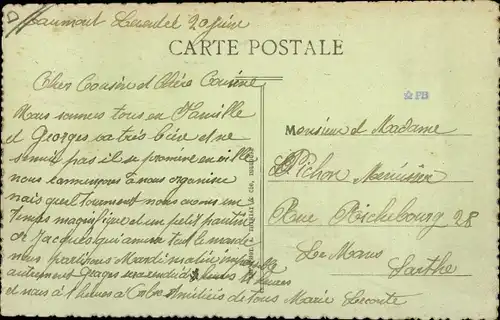 Beaumont Lecendel 20 Juin
CARTE POSTALE
Cher Cousin et Chère Cousine
Nous sommes tous en Famille
et Georges va très bien et ne
pas il se promène en ville
nous commençons à nous organise
mais quel tourment nous avons un
Temps magnifique et un petit pantin
de Jacques qui amuse tout le monde
nous partirons Mardi matin
autrement
et nous à 1 heures à amitiés de tous Marie Leconte
PB
Monsieur et Madame
Pichon Menuisier
Rue Richebourg 28
Le Mans
Sarthe